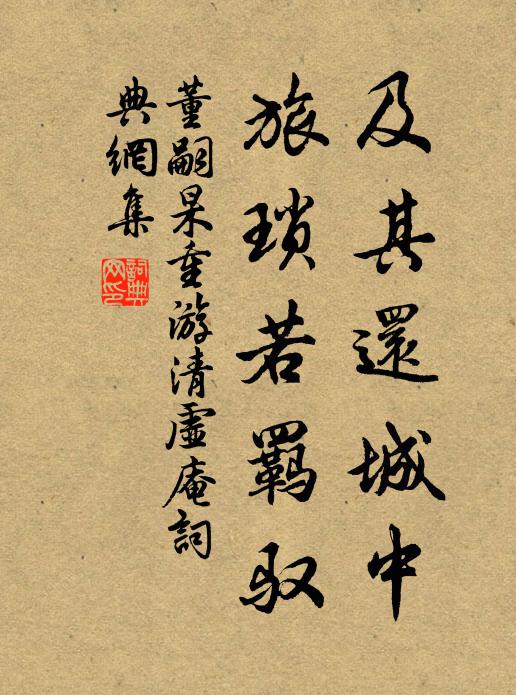 及其還城中
旅瑣若羁馭
董嗣杲重游清虛庵詞
典網集
詞典
网印